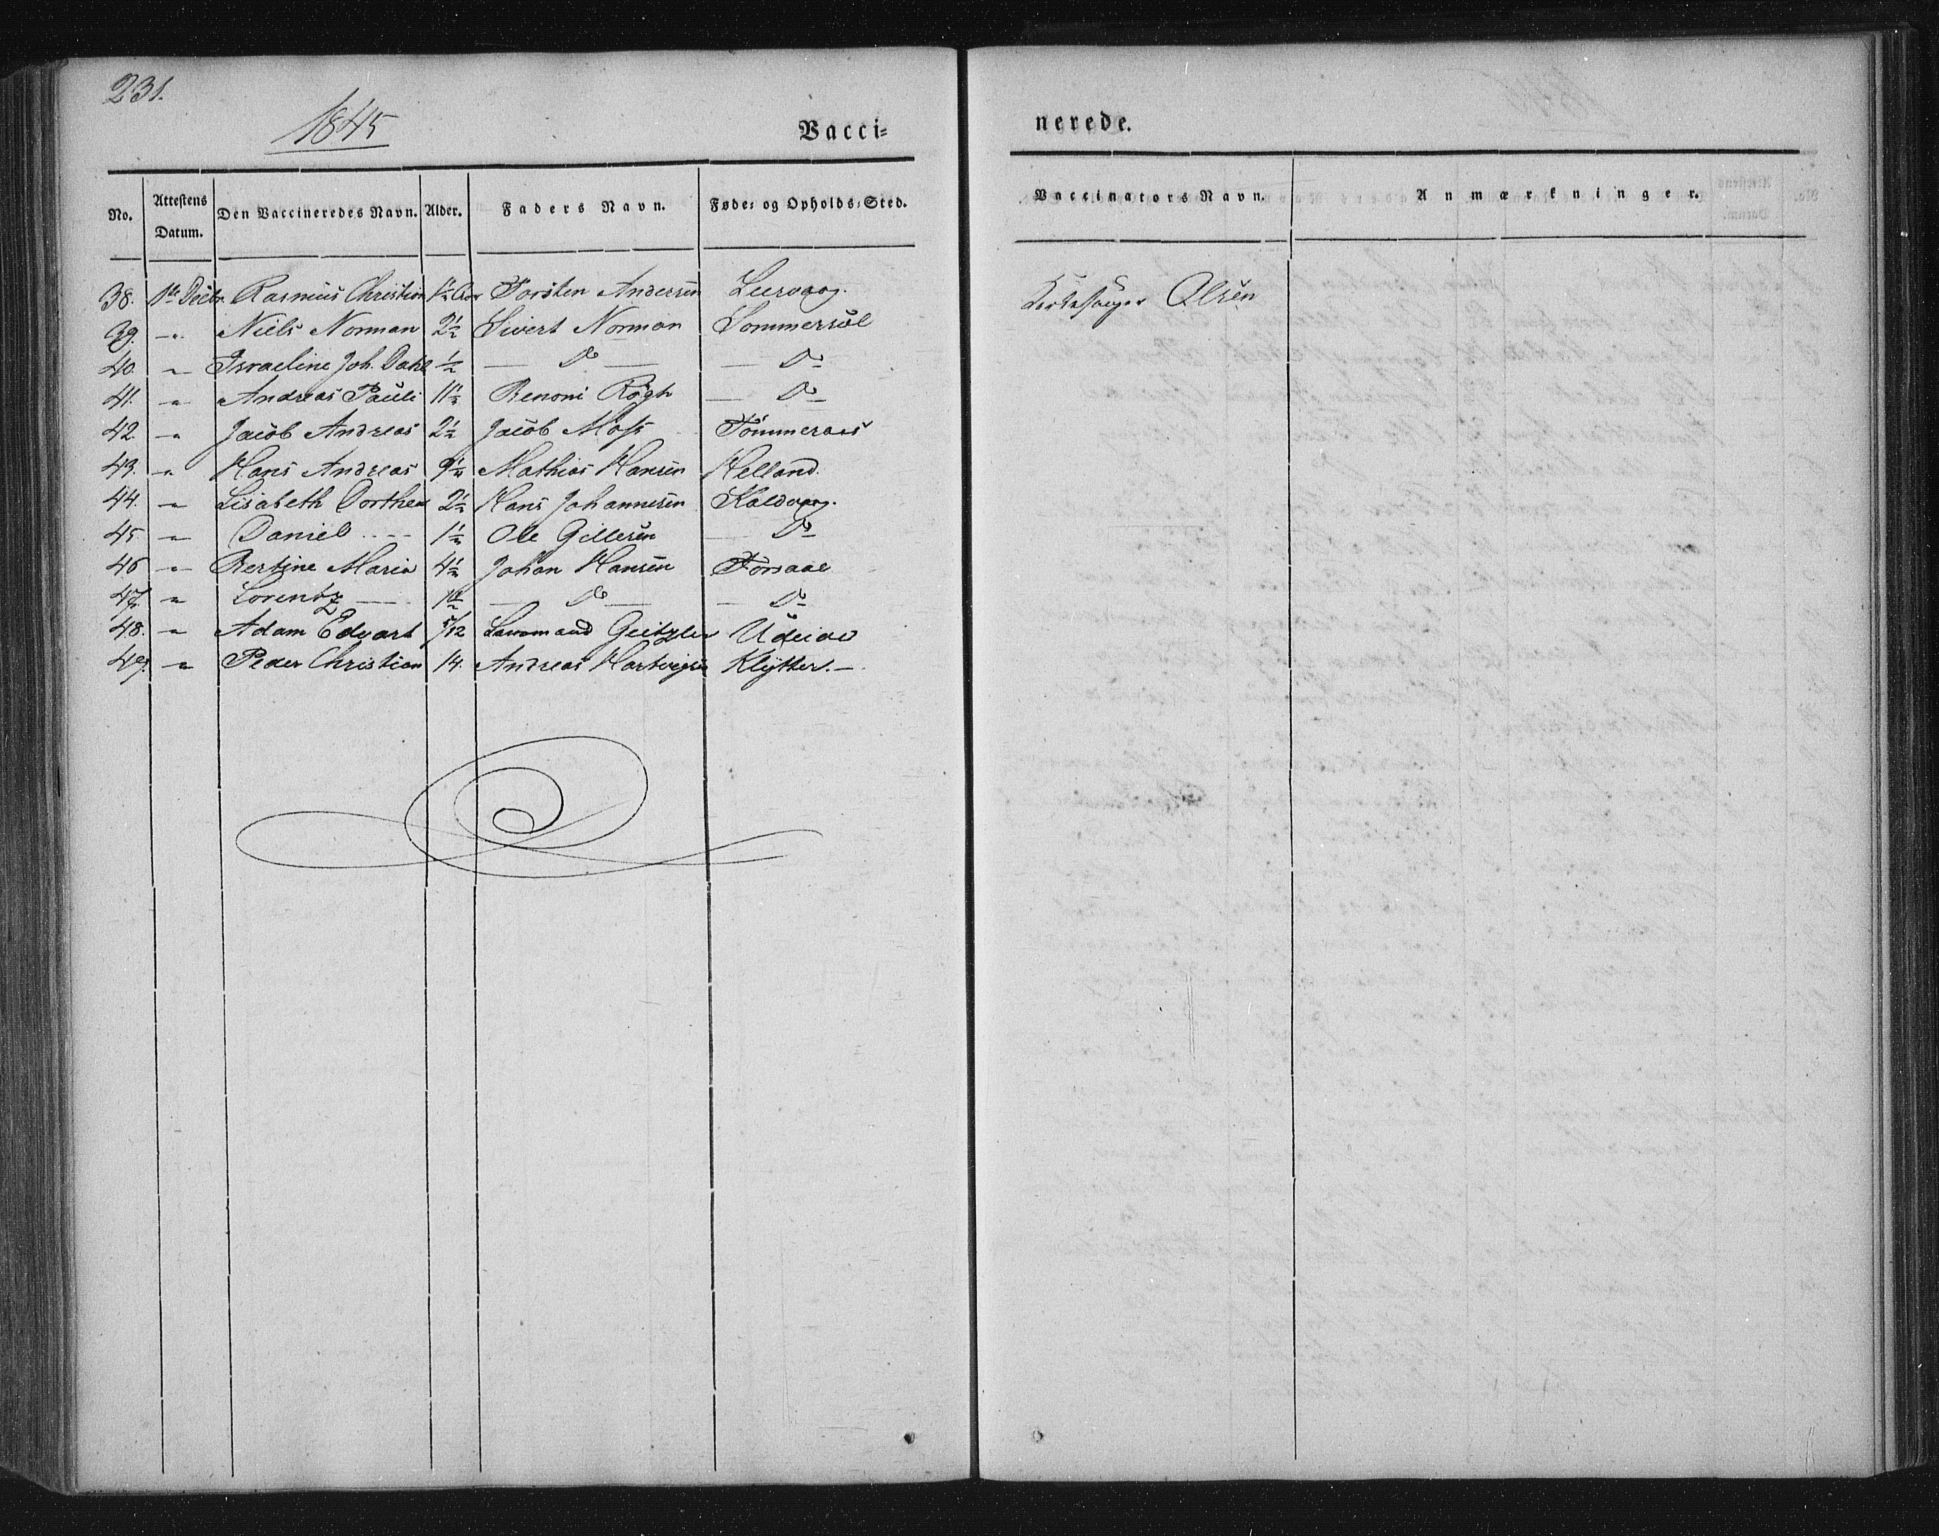 231.
1845
Vacci=
nerede.
No. Attestens Datum. Den Vaccineredes Navn. Alder. Faders Navn. Føde- og Opholds-Sted. Vaccinators Navn. Anmærkninger.
38. 1ste Decbr. Rasmus Christian 1½ Aar Torsten Andersen Leervaag. Kirkesanger Olsen
39. -"- Niels Norman 2½ Sivert Norman Sommersæl
40. " Israeline Joh. Dahl ½ — Do — — Do
41. " Andreas Pauli 11½ Benoni Røgh — Do
42. -" Jacob Andreas 2½ Jacob Moss Tømmeraas
43. -" Hans Andreas 9½ Mathias Hansen Helland.
44. -" Lisabeth Dorthea 2½ Hans Johannesen Kaldvaag.
45 -" Daniel 1½ Ole Gillesen — Do
46 -" Bertine Maria 4½ Johan Hansen Forsaae
47. " Lorentz — 1½ — Do — — Do
48. " Adam Edvart 5/12 Lensmand Geitzler
49. " Peder Christian 14. Andreas Hartvigsen Klytter.—